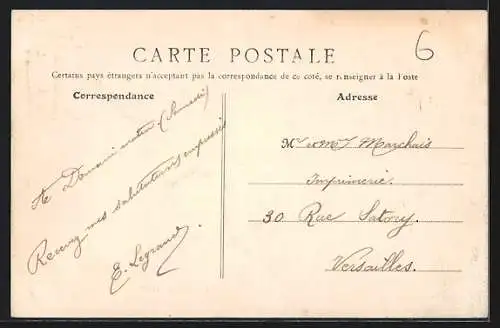 6
CARTE POSTALE
Certains pays étrangers n'acceptant pas la correspondance de ce coté, se renseigner à la Poste
Correspondance
Adresse
Demain matin (Samedi)
Recevez mes salutations empressées
E. Legrand
Mr et Me Marchais
Imprimerie.
30 Rue Satory.
Versailles.